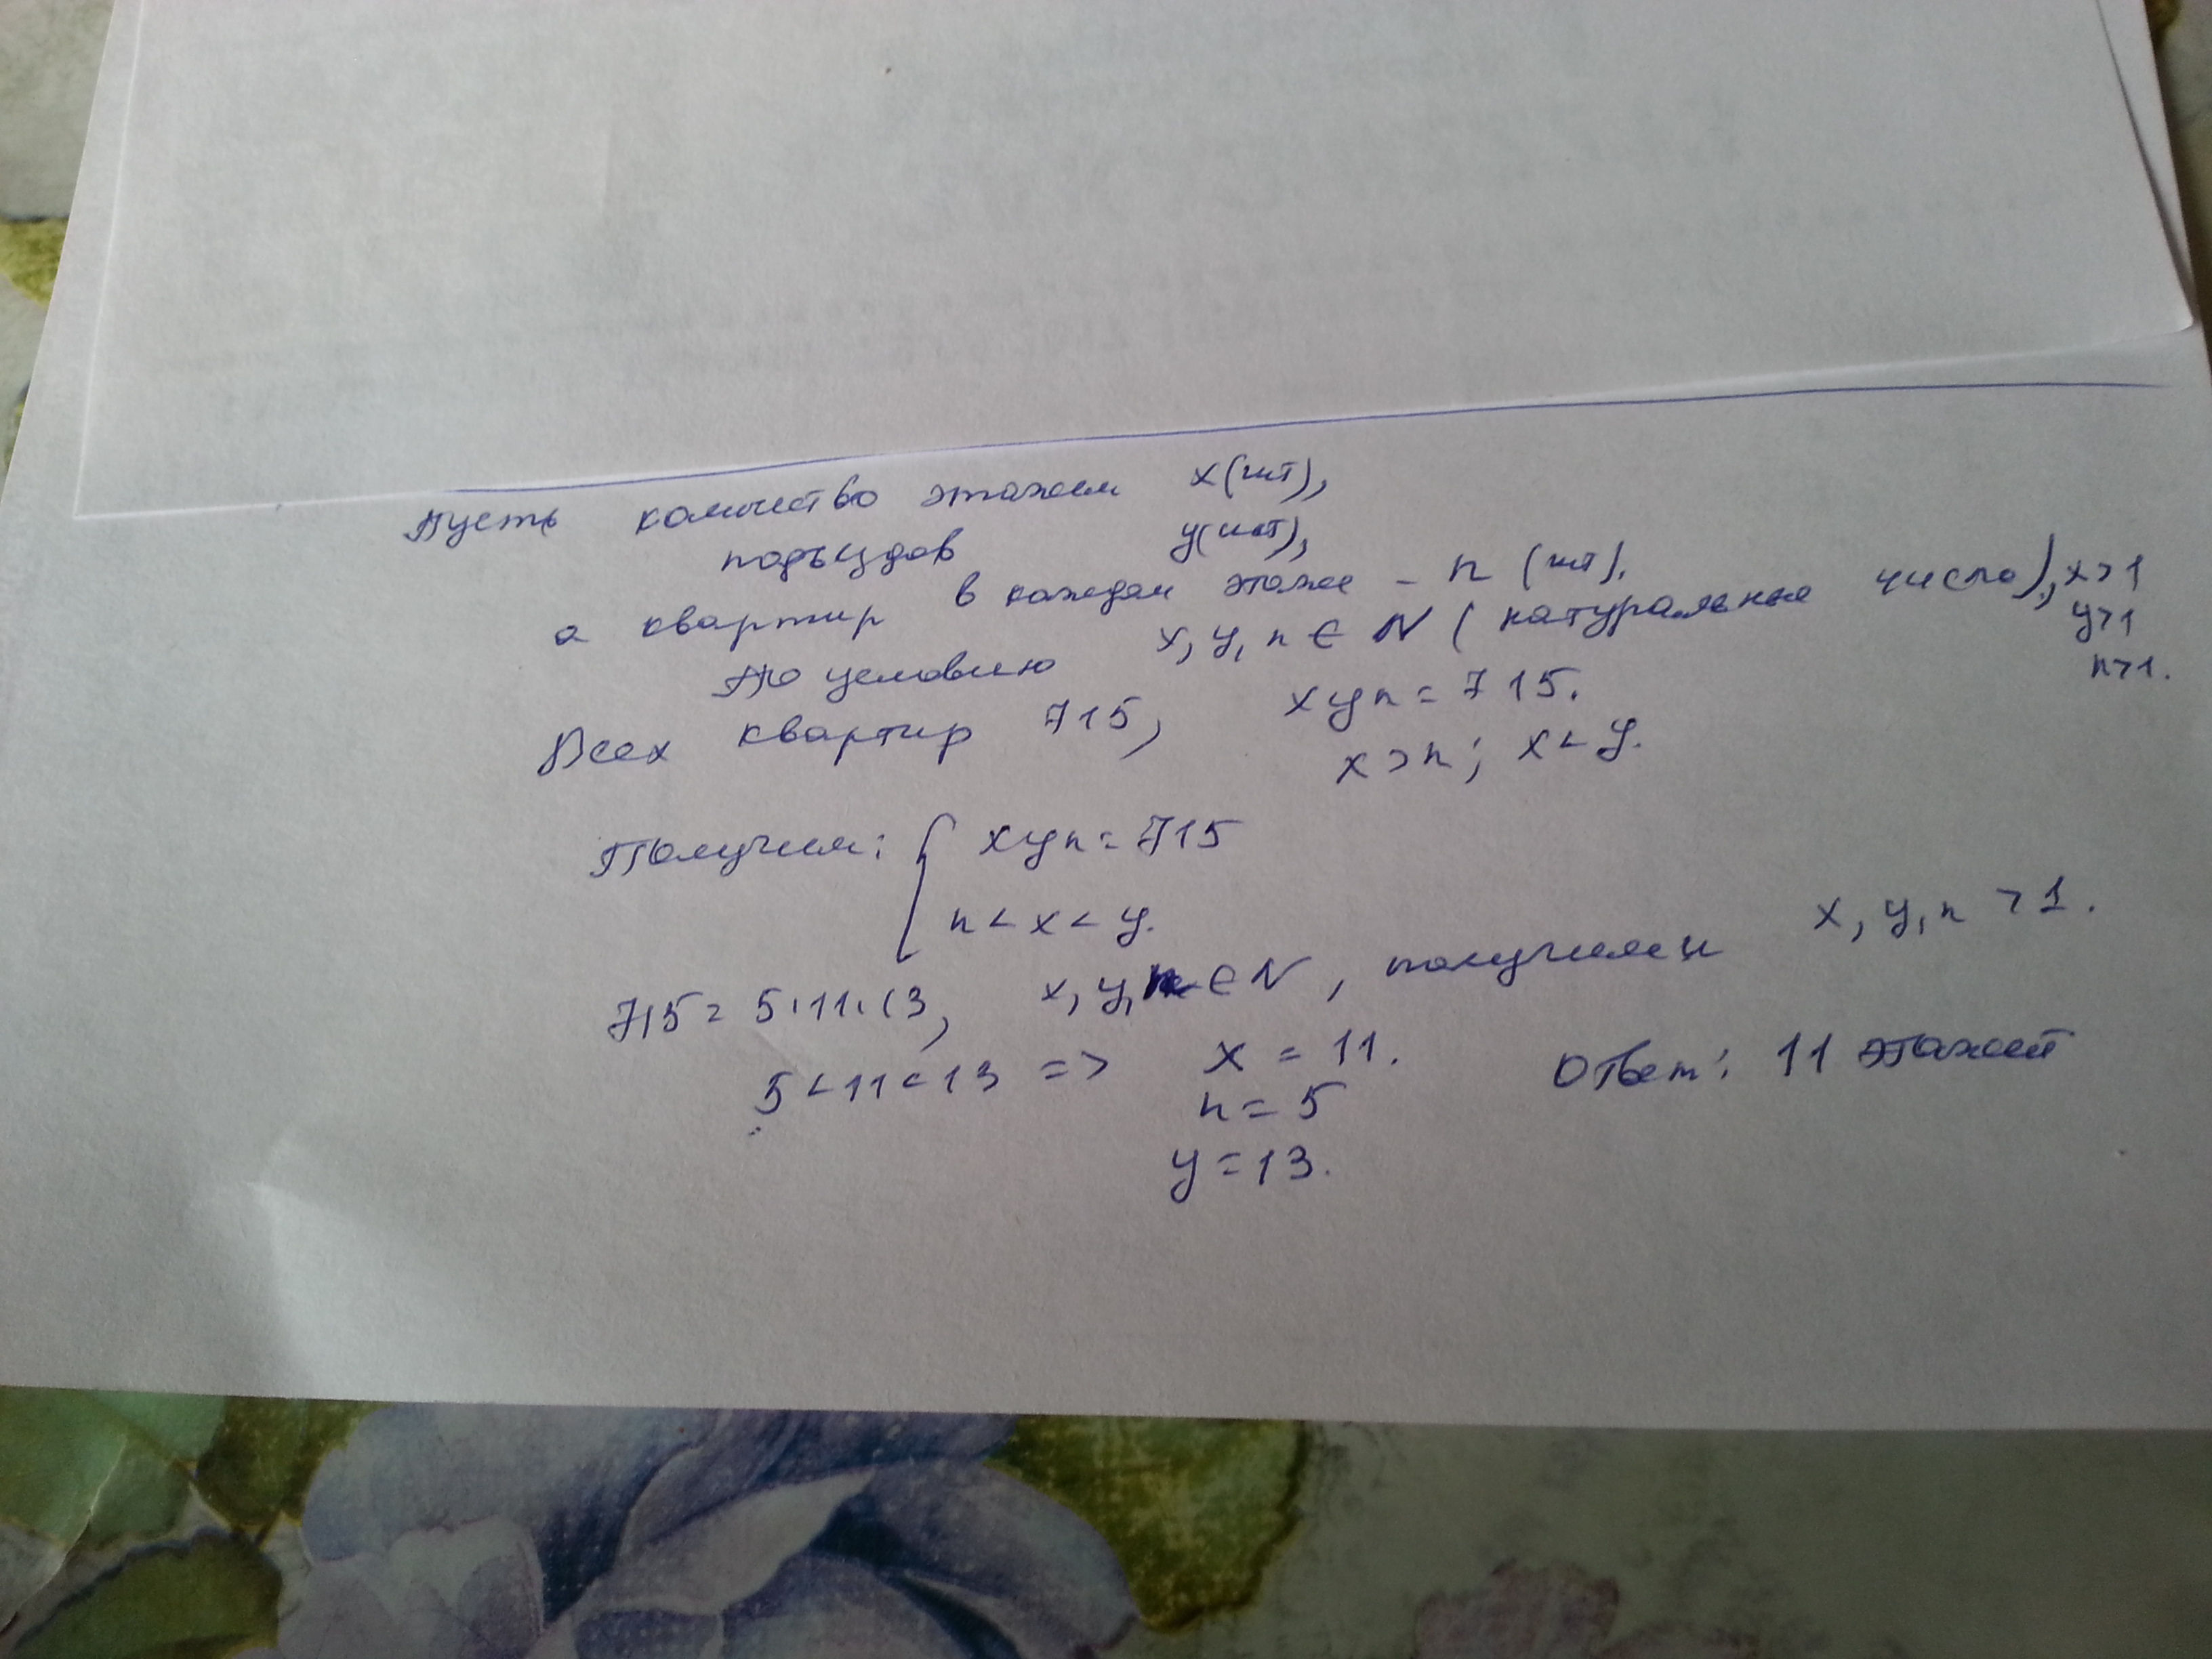 Пусть количество этажей x(шт),
подъездов y(шт),
а квартир в каждом этаже – n (шт).
По условию x, y, n ∈ N (натуральные число), x>1
y>1
n>1.
Всех квартир 715, xyn = 715.
x > n; x < y.
Получим: { xyn = 715
n < x < y.
715 = 5·11·13, x, y, n ∈ N, получаем x, y, n > 1.
5 < 11 < 13 => x = 11.
n = 5
y = 13.
Ответ: 11 этажей